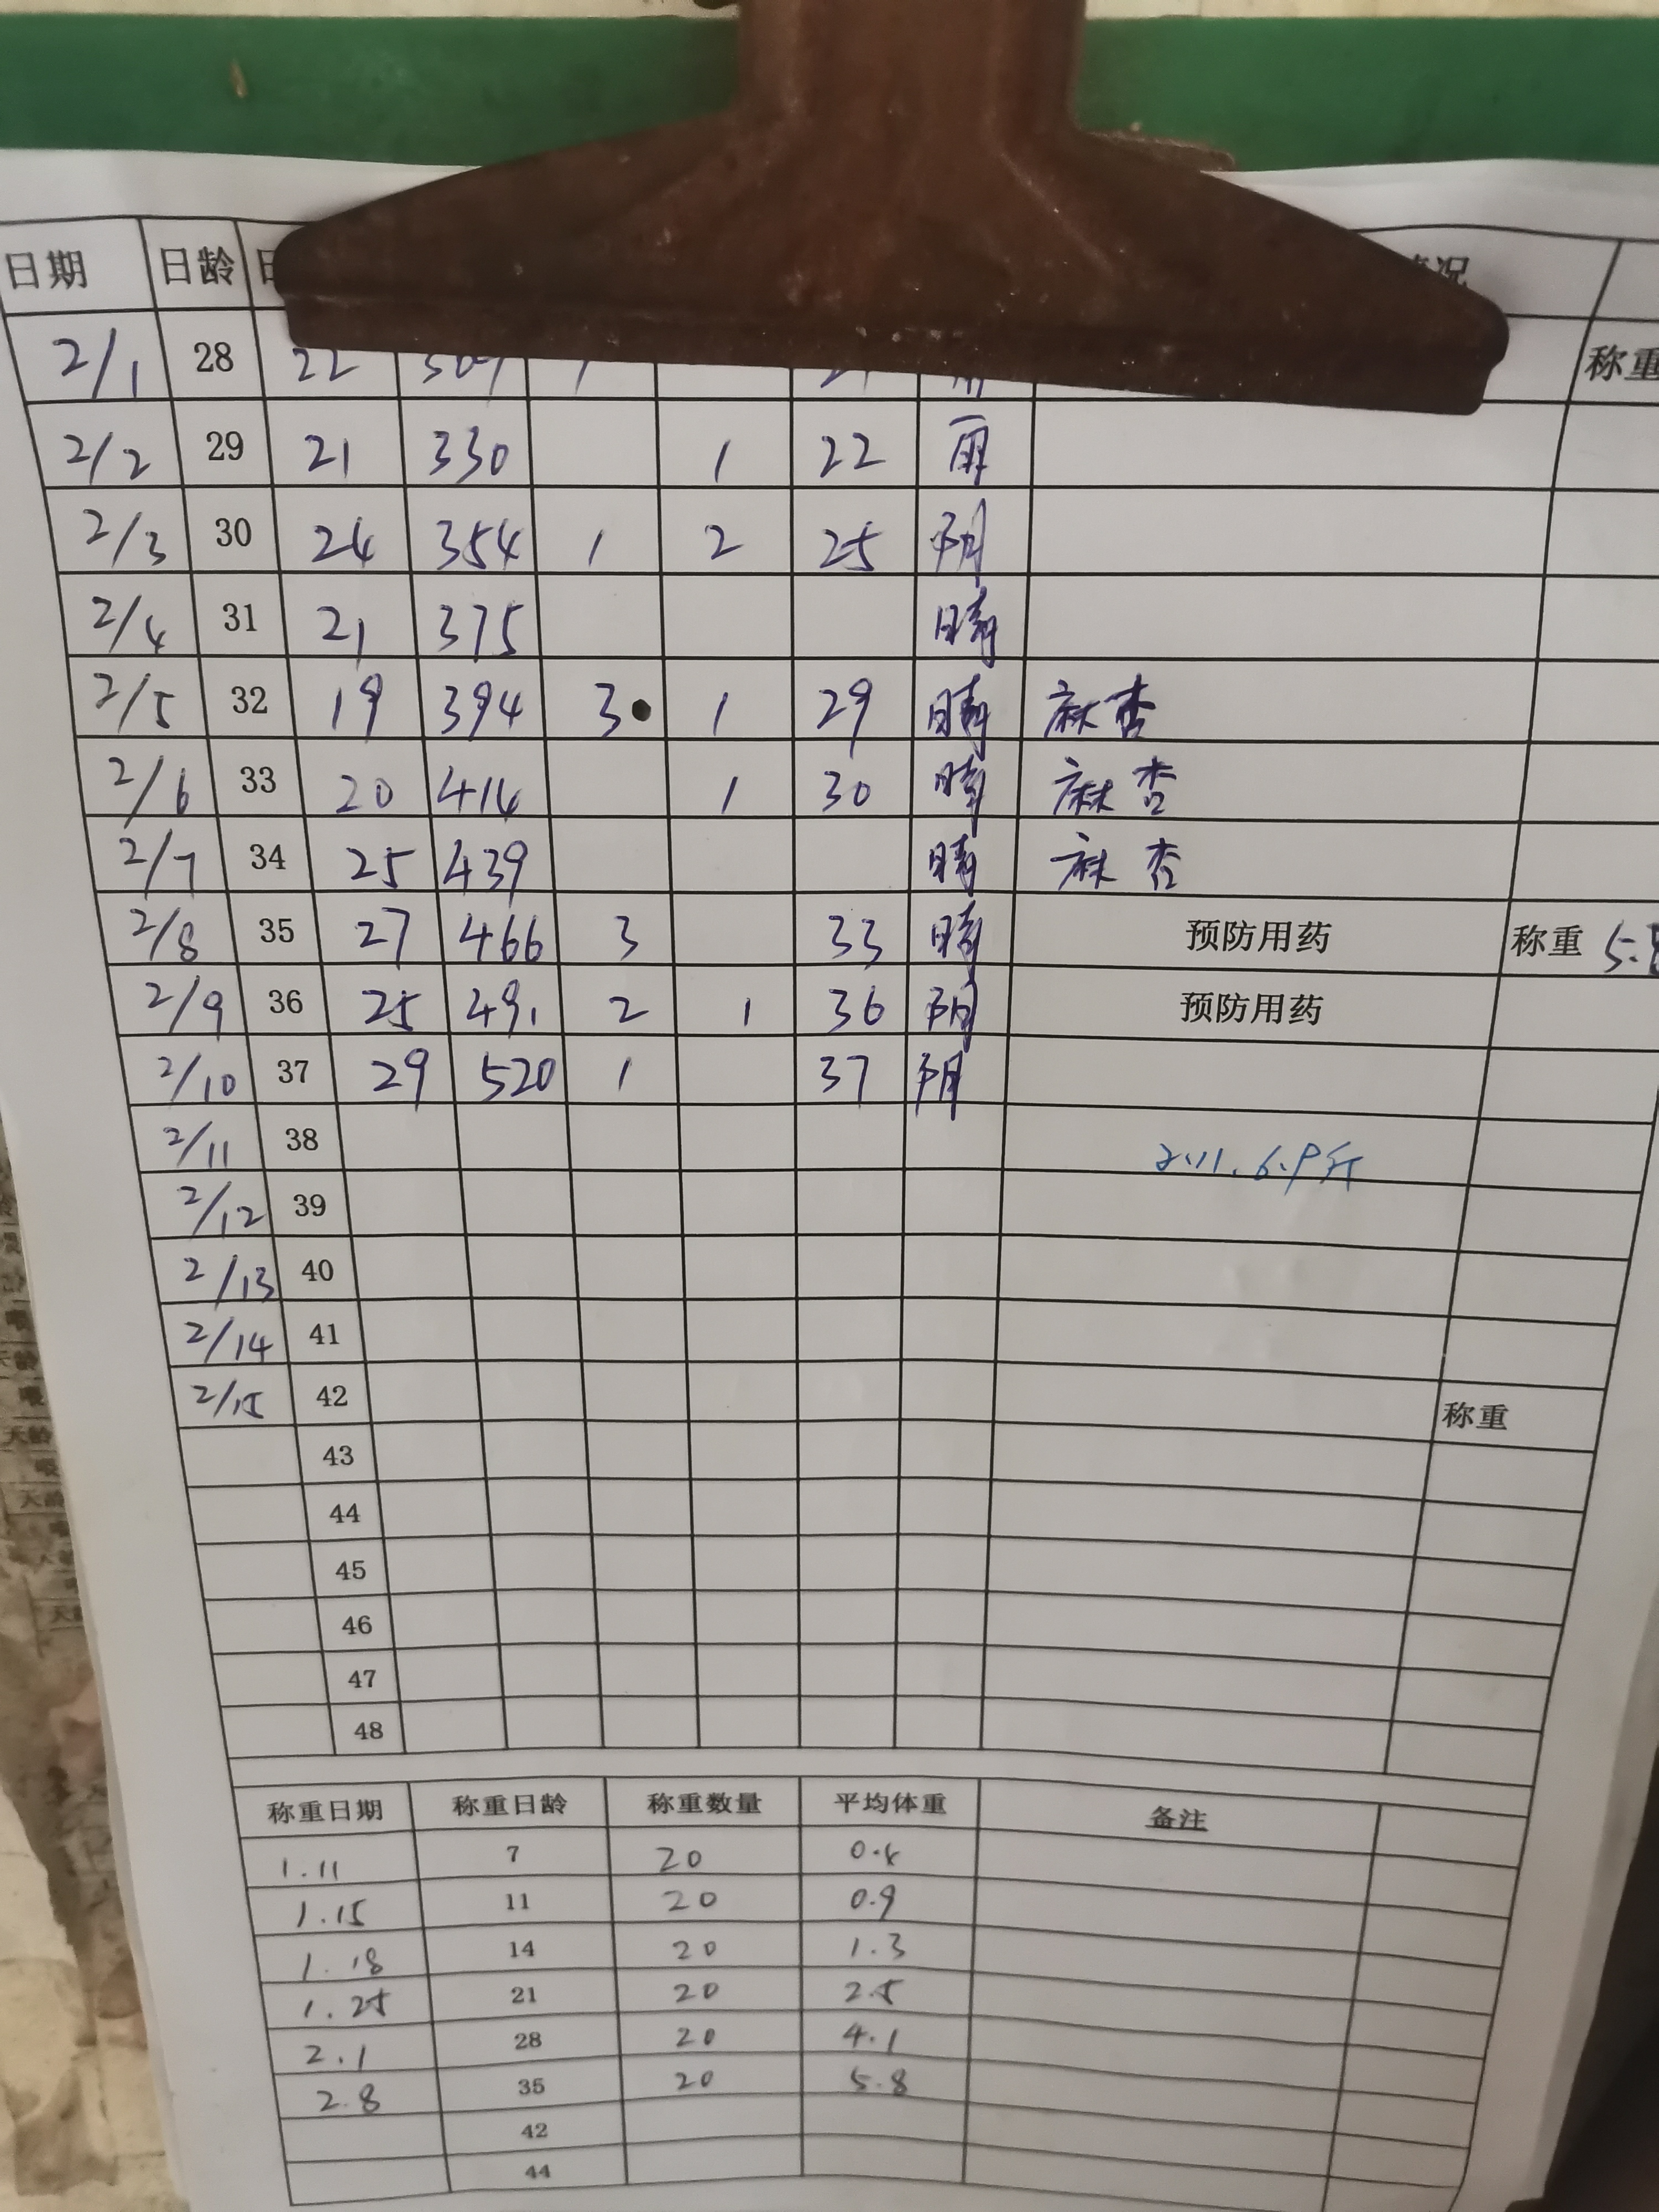 日期 日龄 况
2/1 28 22 称重
2/2 29 21 330 1 22 雨
2/3 30 24 354 1 2 25 阴
2/4 31 21 375 晴
2/5 32 19 394 3 1 29 晴 麻杏
2/6 33 20 414 1 30 晴 麻杏
2/7 34 25 439 晴 麻杏
2/8 35 27 466 3 33 晴 预防用药 称重 5.8
2/9 36 25 491 2 1 36 阴 预防用药
2/10 37 29 520 1 37 阴
2/11 38 2.11. 6.9斤
2/12 39
2/13 40
2/14 41
2/15 42 称重
43
44
45
46
47
48
称重日期 称重日龄 称重数量 平均体重 备注
1.11 7 20 0.4
1.15 11 20 0.9
1.18 14 20 1.3
1.25 21 20 2.5
2.1 28 20 4.1
2.8 35 20 5.8
42
44